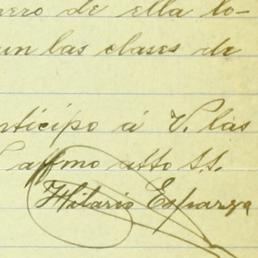 nero de ella to-
un las clases de
nticipo á V. las
affmo atto S.S.
Hilario Esparza